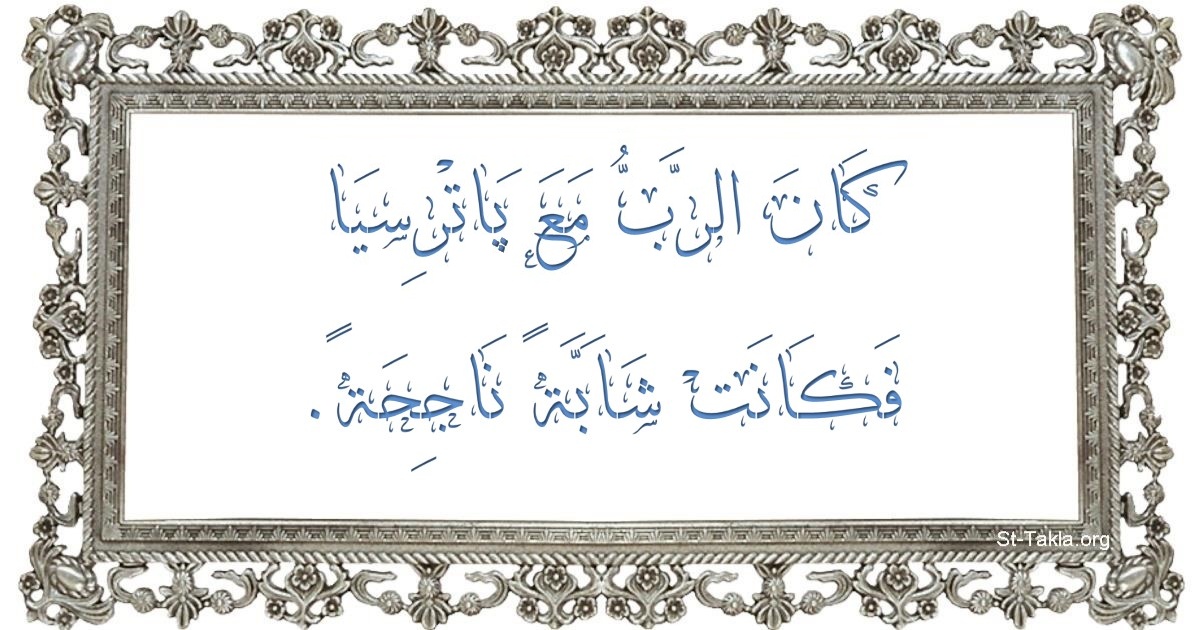 كَانَ الرَّبُّ مَعَ پَاتْرِسِيَا
فَكَانَتْ شَابَّةً نَاجِحَةً.
St-Takla.org